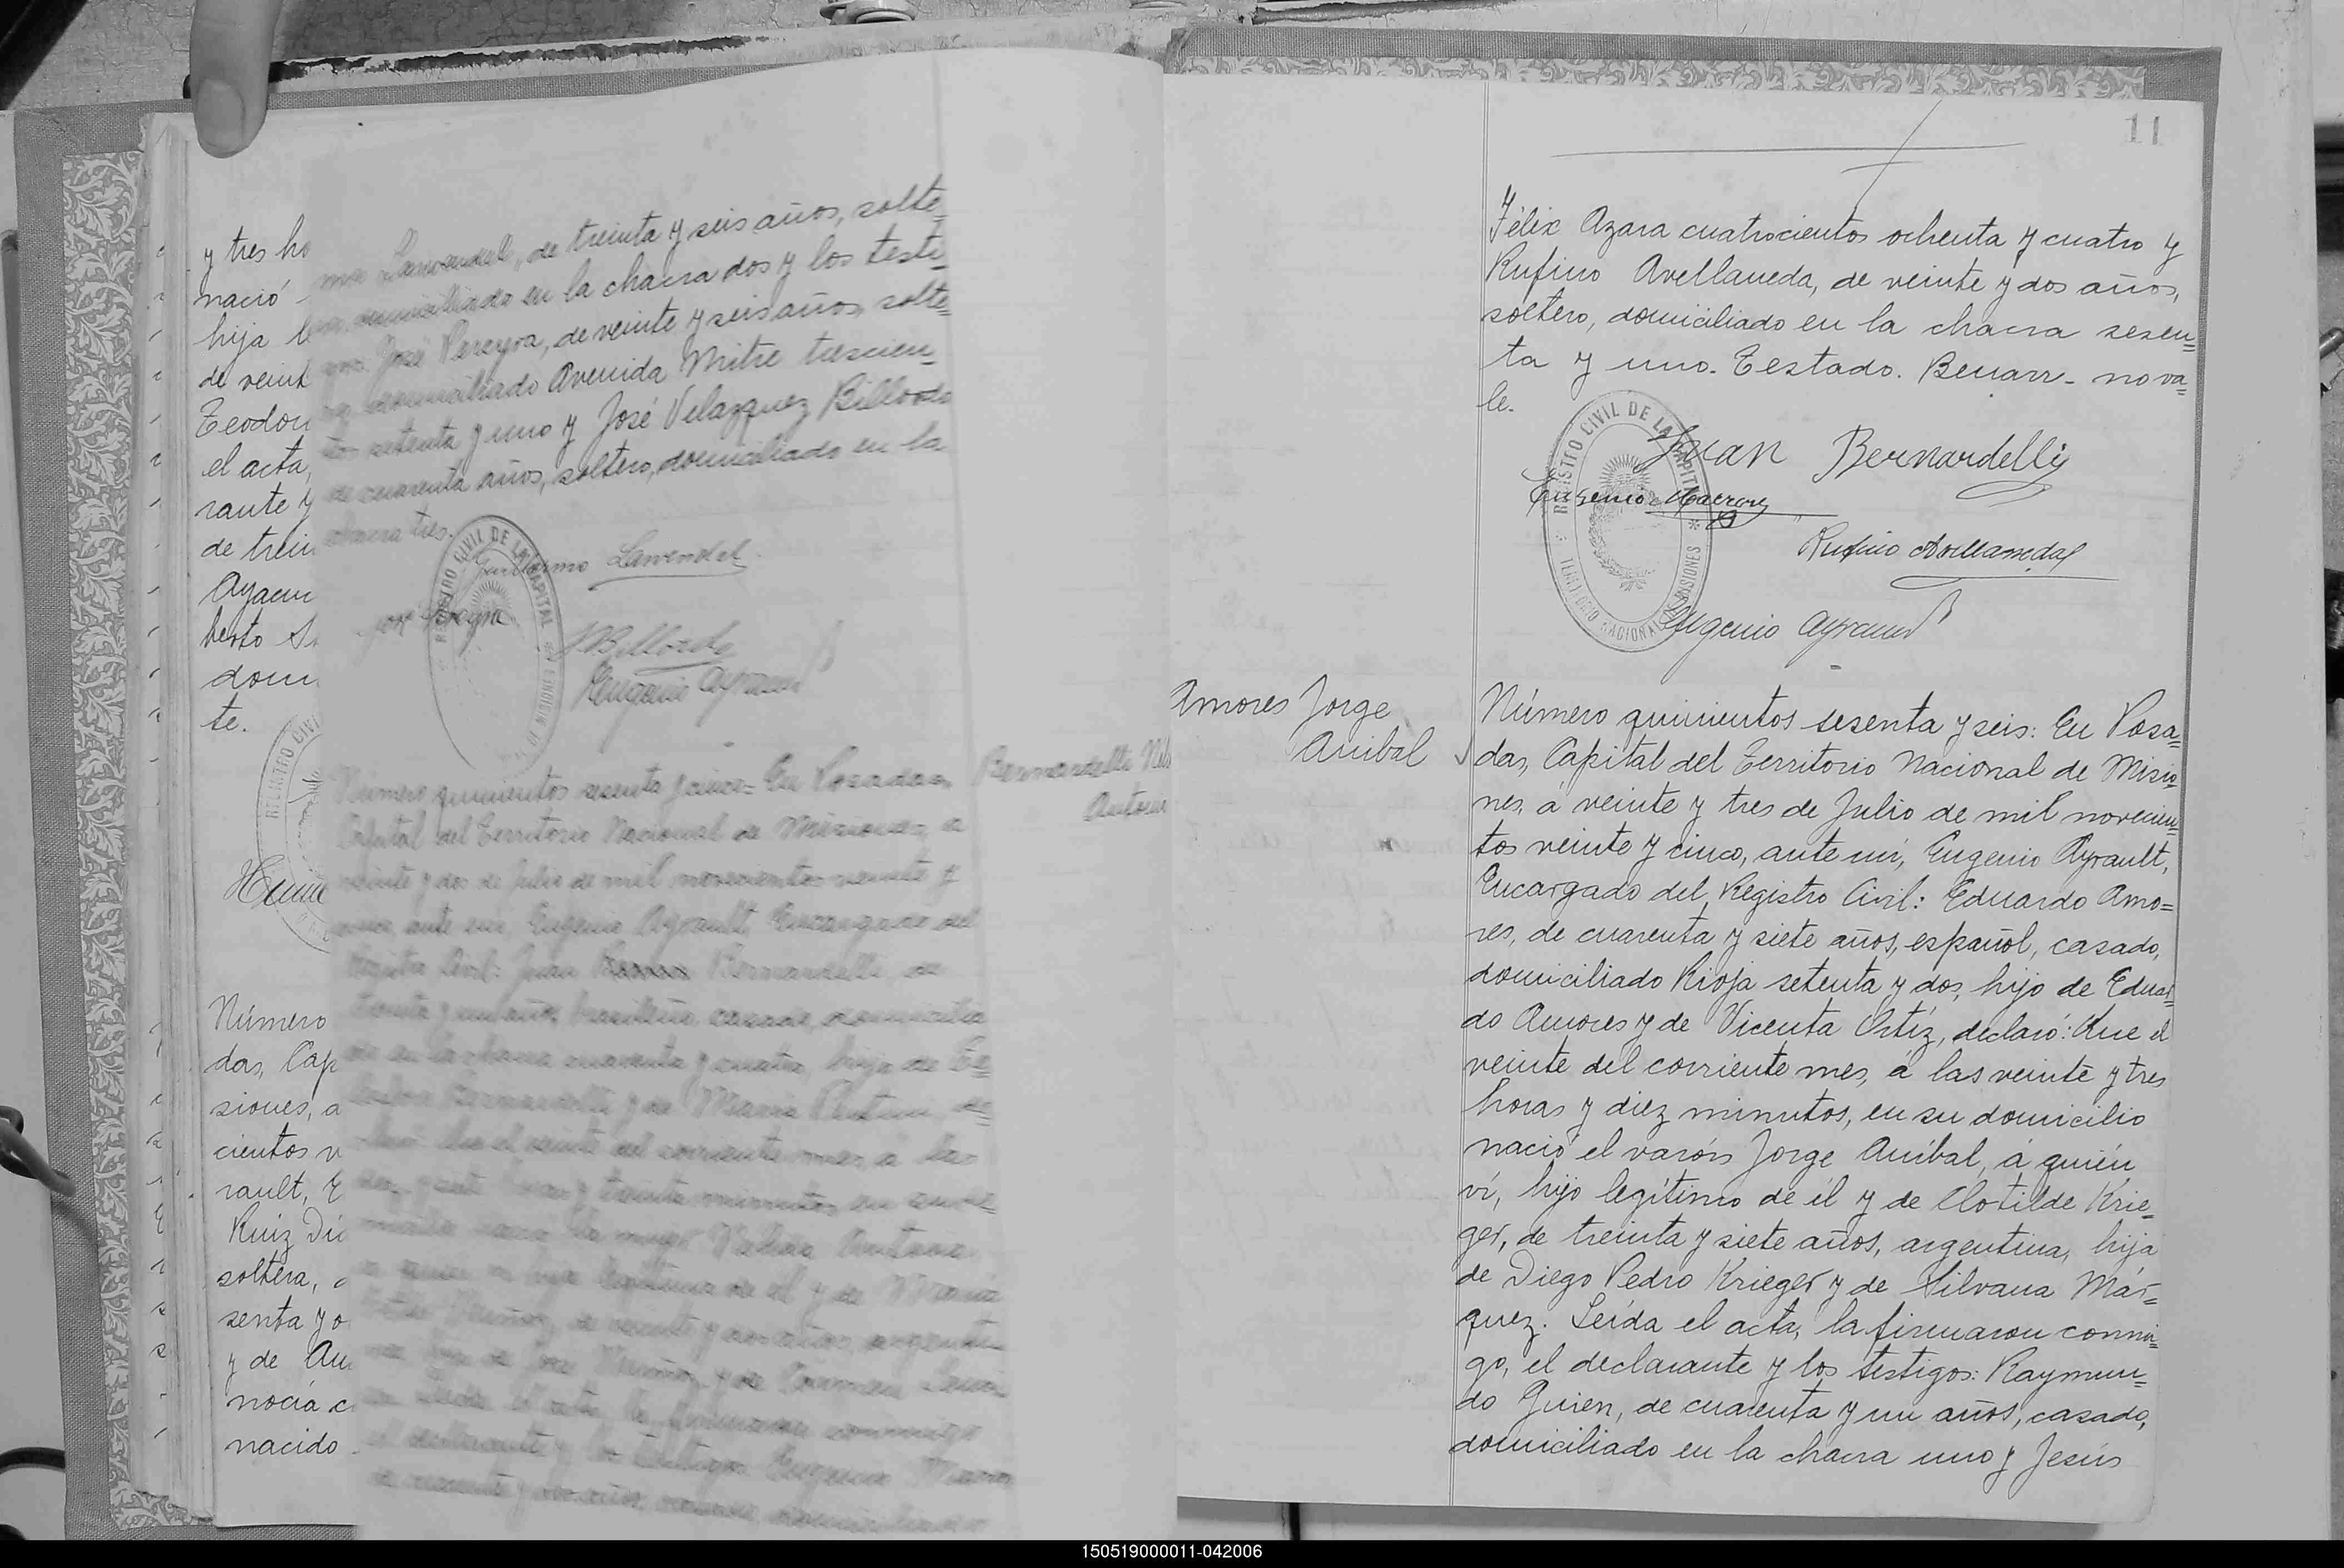 y tres ho
nació
hija le
de veint
Teodor
el acta,
rante y
de trein
Ayacu
berto
dom
te.
REGISTRO CIVIL
Número
das, Cap
siones, a
cientos v
rault, E
Ruiz Di
soltera,
senta y o
y de Au
nocía c
nacido
mo Lawendel, de treinta y seis años, solte=
ro, domiciliado en la chacra dos y los testi=
gos: José Pereyra, de veinte y seis años, solte=
ro, domiciliado Avenida Mitre trescien=
tos setenta y uno y José Velazquez Billordo
de cuarenta años, soltero, domiciliado en la
chacra tres.
REGISTRO CIVIL DE LA CAPITAL
Guillermo Lawendel
José Pereyra
Billordo
Eugenio Ayrault
Bernardelli
Número quinientos sesenta y cinco= En Posadas,
Capital del Territorio Nacional de Misiones, a
veinte y dos de Julio de mil novecientos veinte y
cinco, ante mí, Eugenio Ayrault, Encargado del
Registro Civil: Juan Bernardelli, de
treinta y un años, brasileño, casado, domicilia
do en la chacra cuarenta y cuatro, hijo de
Bernardelli y de María
que el veinte del corriente mes, a las
y treinta minutos, en su
nació la mujer
a quien ví, hija legítima de él y de María
Muñoz, de veinte y años, argenti
na, hija de José Muñoz y de Carmen
Leída el acta, la firmaron conmigo
el declarante y los testigos: Eugenio
de cuarenta y años, casado, domiciliado
11
Félix Azara cuatrocientos ochenta y cuatro y
Rufino Avellaneda, de veinte y dos años,
soltero, domiciliado en la chacra sesen=
ta y uno. Testado. Benarr- no va=
le.
REGISTRO CIVIL DE LA CAPITAL
TERRITORIO NACIONAL DE MISIONES
Juan Bernardelli
Eugenio
Rufino Avellaneda
Eugenio Ayrault
Amores Jorge
Anibal
Número quinientos sesenta y seis: En Posa=
das, Capital del Territorio Nacional de Misio=
nes, á veinte y tres de Julio de mil novecien=
tos veinte y cinco, ante mí, Eugenio Ayrault,
Encargado del Registro Civil: Eduardo Amo=
res, de cuarenta y siete años, español, casado,
domiciliado Rioja setenta y dos, hijo de Eduar=
do Amores y de Vicenta Ortíz, declaró: Que el
veinte del corriente mes, á las veinte y tres
horas y diez minutos, en su domicilio
nació el varón Jorge Aníbal, á quién
ví, hijo legítimo de él y de Clotilde Krie=
ger, de treinta y siete años, argentina, hija
de Diego Pedro Krieger y de Silvana Már=
quez. Leída el acta, la firmaron conmi=
go, el declarante y los testigos: Raymun=
do Guien, de cuarenta y un años, casado,
domiciliado en la chacra uno y Jesús
150519000011-042006